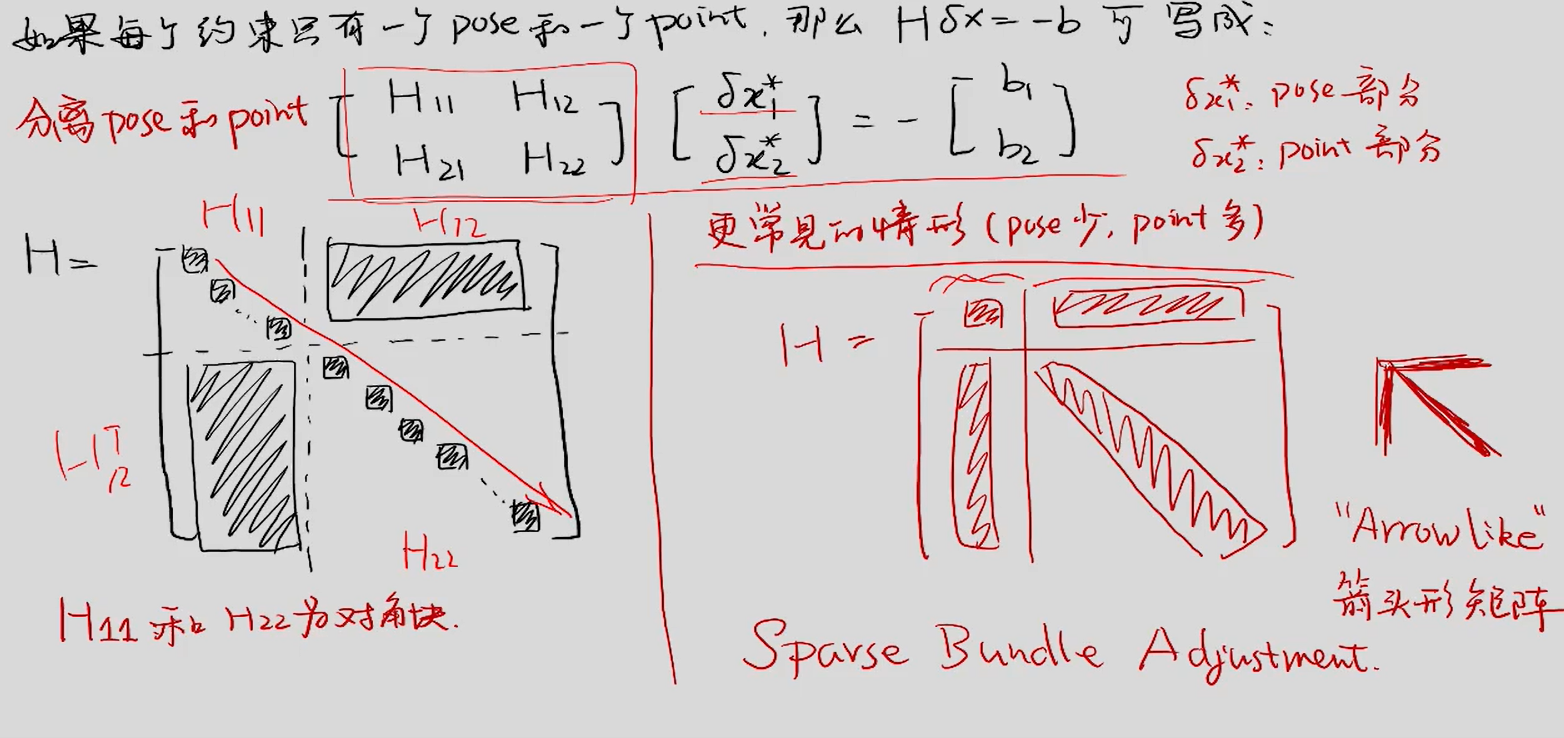 如果每个约束只有一个pose和一个point，那么 Hδx=-b 可写成：
分离pose和point [H11 H12; H21 H22] [δx1*; δx2*] = -[b1; b2]
δx1*: pose部分
δx2*: point部分
H11 H12
H=
H12^T
H22
H11 和 H22为对角块.
更常见的情形（pose少，point多）
H =
"Arrow like"
箭头形矩阵
Sparse Bundle Adjustment.